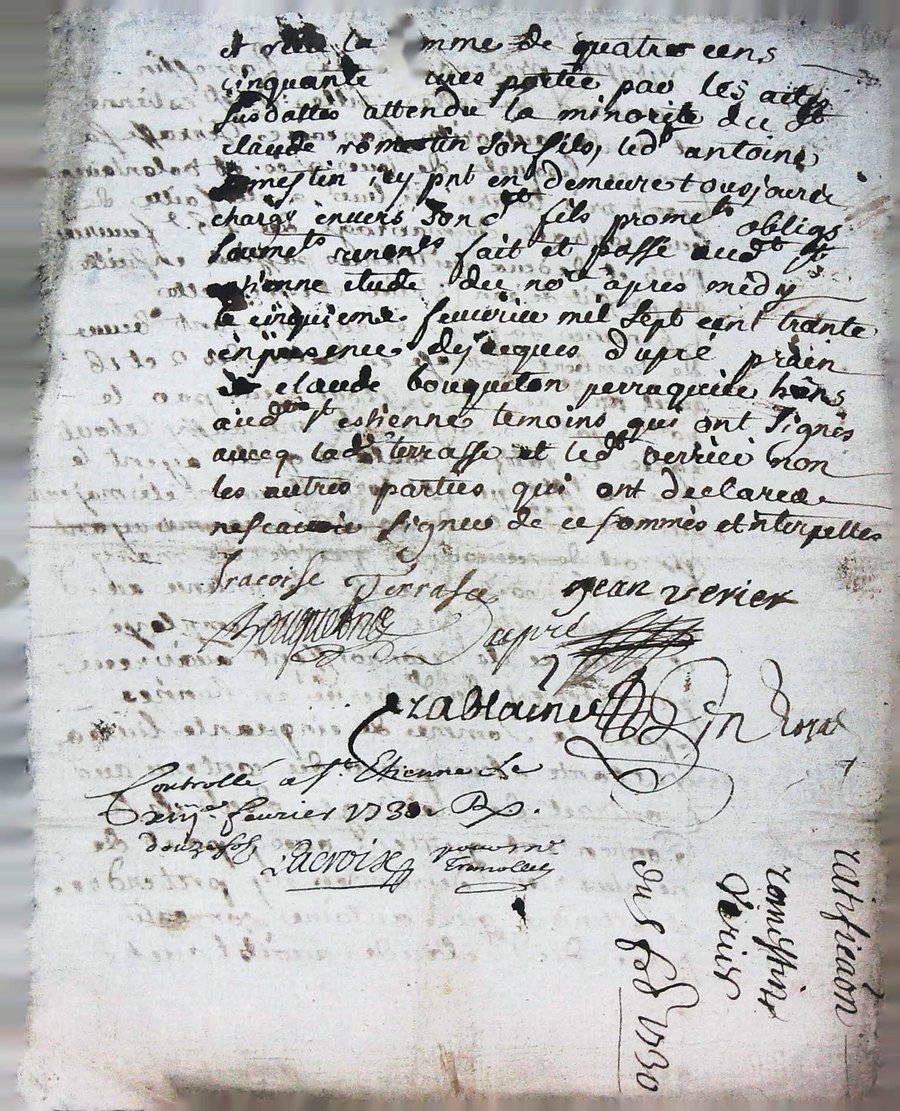 et la mme de quatre cens
cinquante portée par les
susdattes attendu la minorité du dt
claude romestin son fils, ledt antoine
mestin, icy pnt en demeure tousjours
chargé envers son dt fils promets obligs
soumets renons fait et passé audt st
estienne etude du nore apres midy
le cinquieme fevrier mil sept cent trante
en presence de jacques dupré prain
et claude bouqueton perruquier hans
audt st estienne temoins qui ont signés
avecq ladt terrasse et ledt verrier non
les autres parties qui ont declarés
ne scavoir signer de ce sommés et interpellés
fracoise Terrase jean verier
Dupré
royal
Controllé a st Etienne le
xiije fevrier 1730 Rx.
douze sols
Lacroix pour mr
ratificaon
romestin
verier
du 5 feb 1730